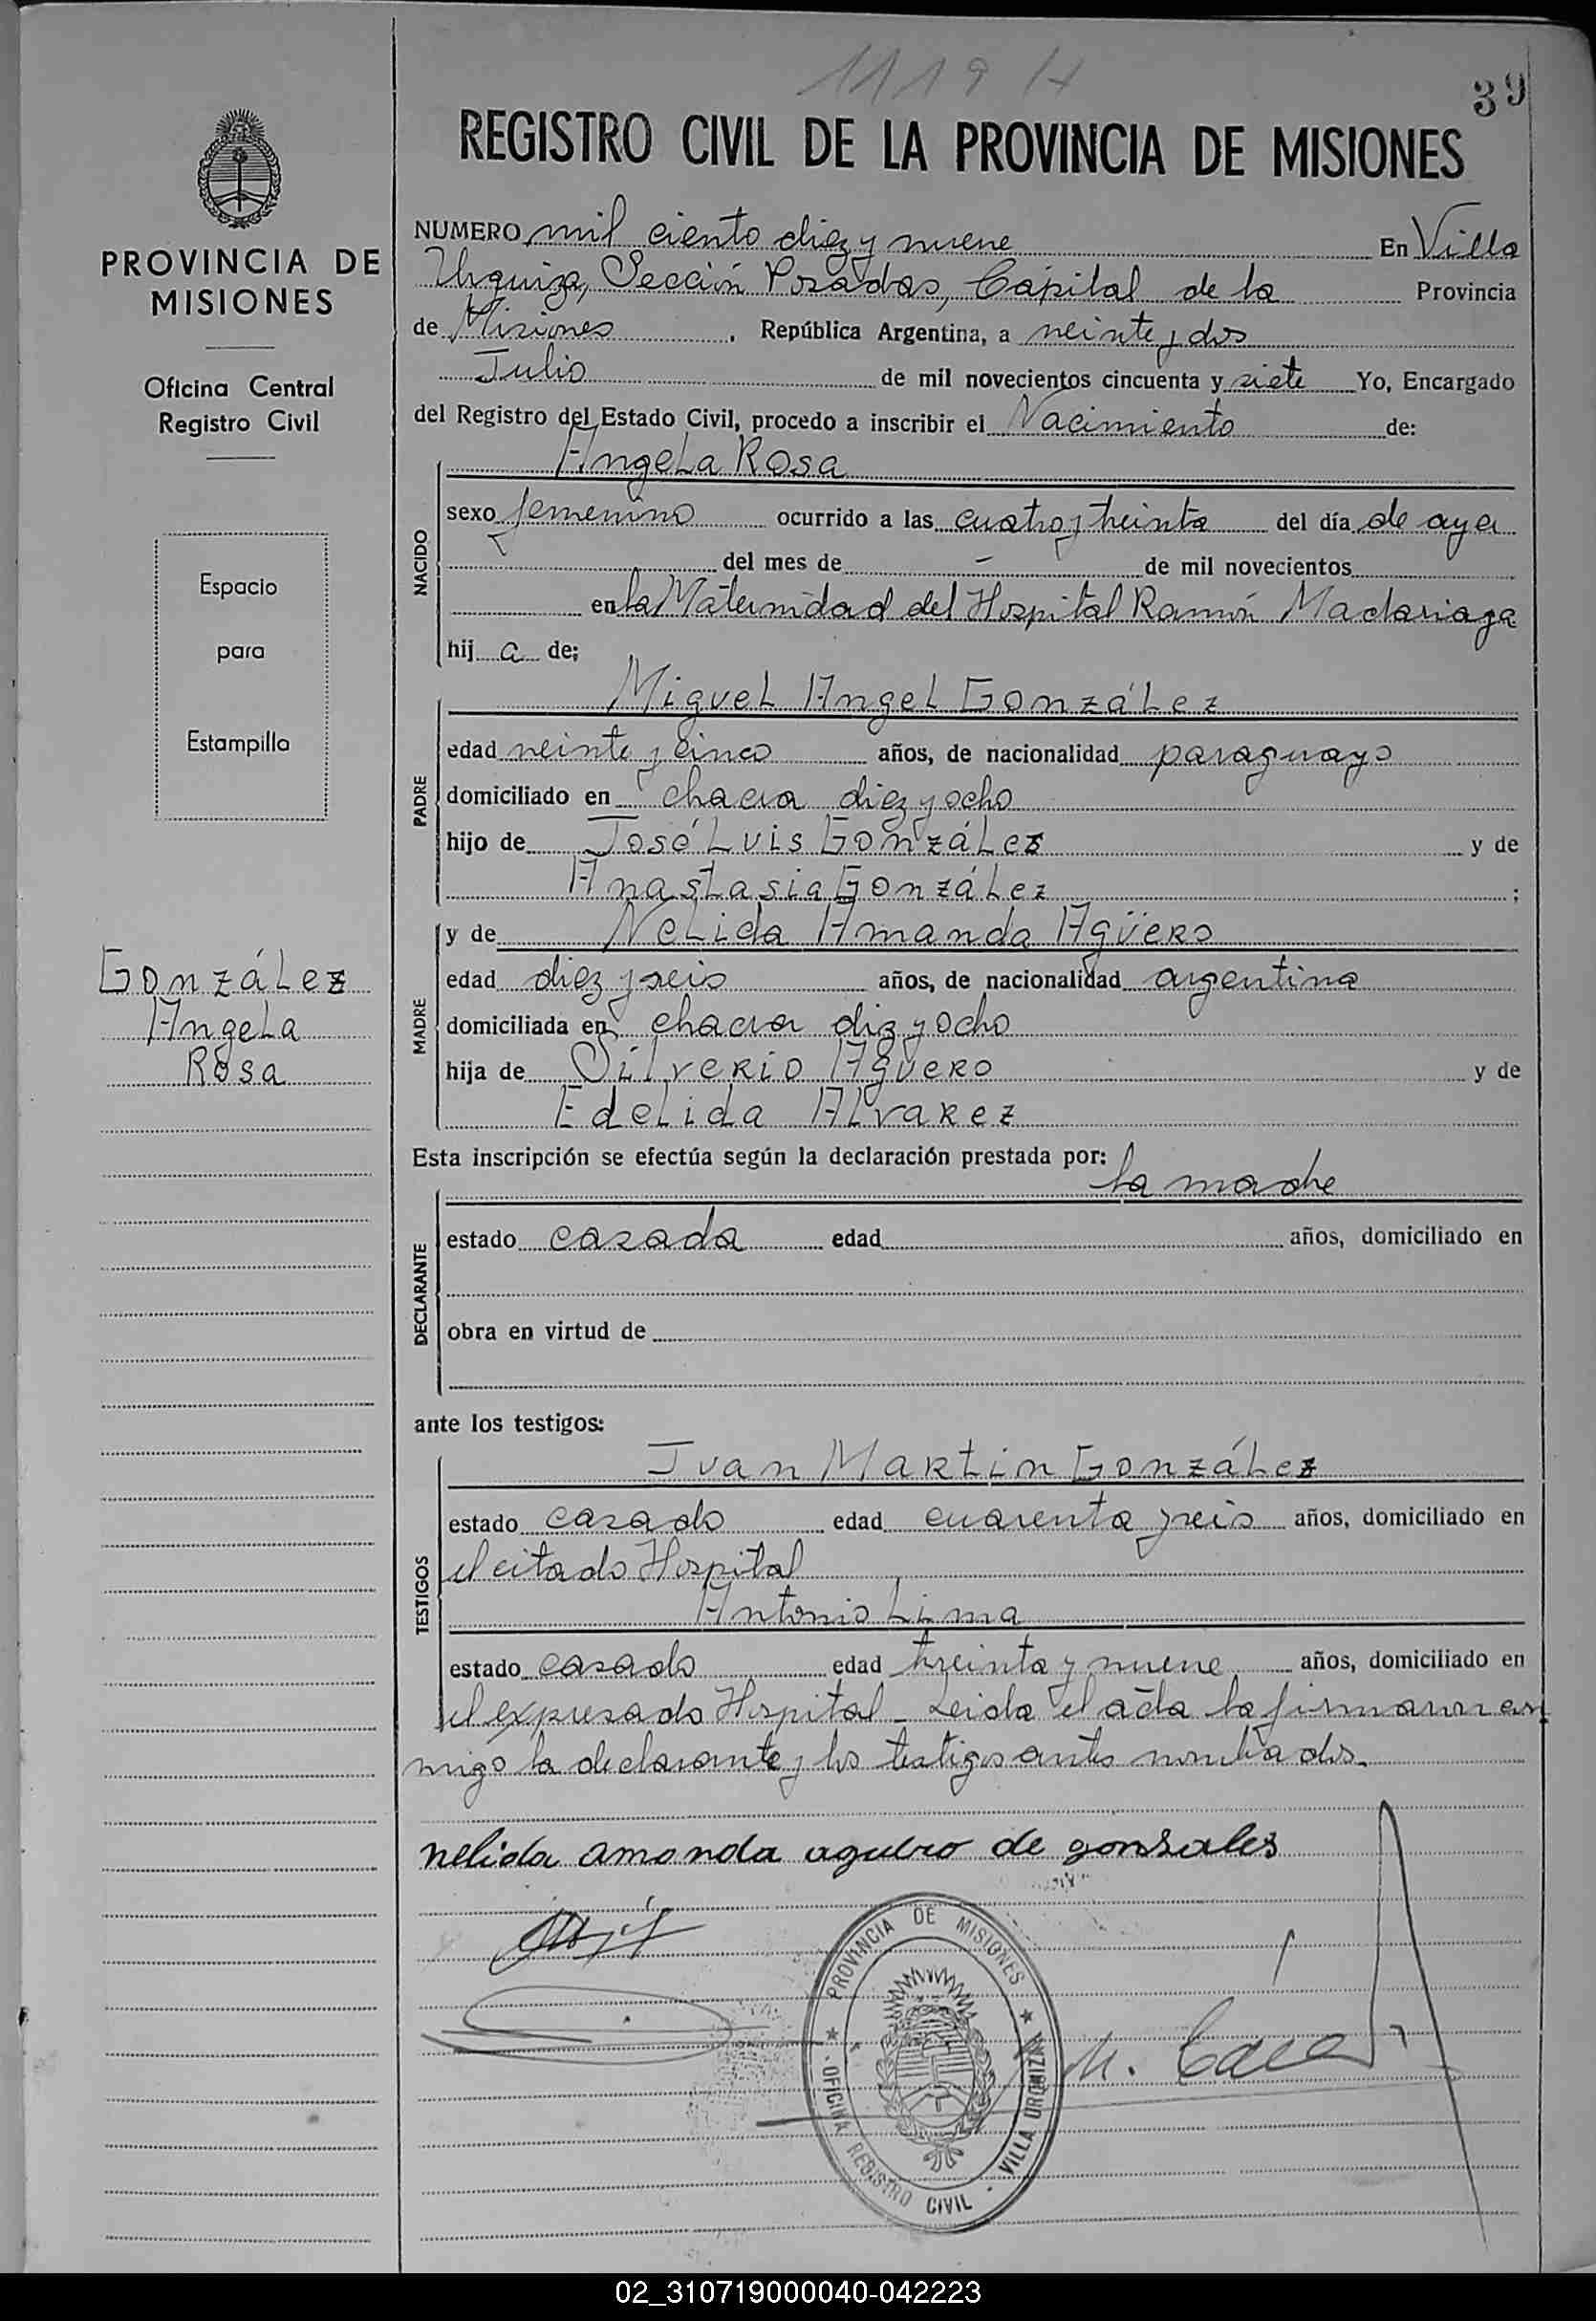 1119 H
39
REGISTRO CIVIL DE LA PROVINCIA DE MISIONES
PROVINCIA DE
MISIONES
Oficina Central
Registro Civil
Espacio
para
Estampilla
González
Angela
Rosa
NUMERO mil ciento diez y nueve En Villa
Urquiza, Sección Posadas, Capital de la Provincia
de Misiones, República Argentina, a veinte y dos
Julio de mil novecientos cincuenta y siete Yo, Encargado
del Registro del Estado Civil, procedo a inscribir el Nacimiento de:
Angela Rosa
NACIDO
sexo femenino ocurrido a las cuatro y treinta del día de ayer
del mes de - de mil novecientos
en la Maternidad del Hospital Ramón Madariaga
hij a de;
Miguel Angel González
PADRE
edad veinte y cinco años, de nacionalidad paraguayo
domiciliado en chacra diez y ocho
hijo de José Luis González y de
Anastasia González ;
y de Nelida Amanda Agüero
MADRE
edad diez y seis años, de nacionalidad argentina
domiciliada en chacra diez y ocho
hija de Silverio Agüero y de
Edelida Alvarez
Esta inscripción se efectúa según la declaración prestada por:
la madre
DECLARANTE
estado casada edad años, domiciliado en
obra en virtud de
ante los testigos:
Juan Martin González
TESTIGOS
estado casado edad cuarenta y seis años, domiciliado en
el citado Hospital
Antonio Lima
estado casado edad treinta y nueve años, domiciliado en
el expresado Hospital - Leida el acta la firmaron con
migo la declarante y los testigos antes nombrados.
nelida amanda aguero de gonsales
PROVINCIA DE MISIONES
OFICINA REGISTRO CIVIL - VILLA URQUIZA
02_310719000040-042223